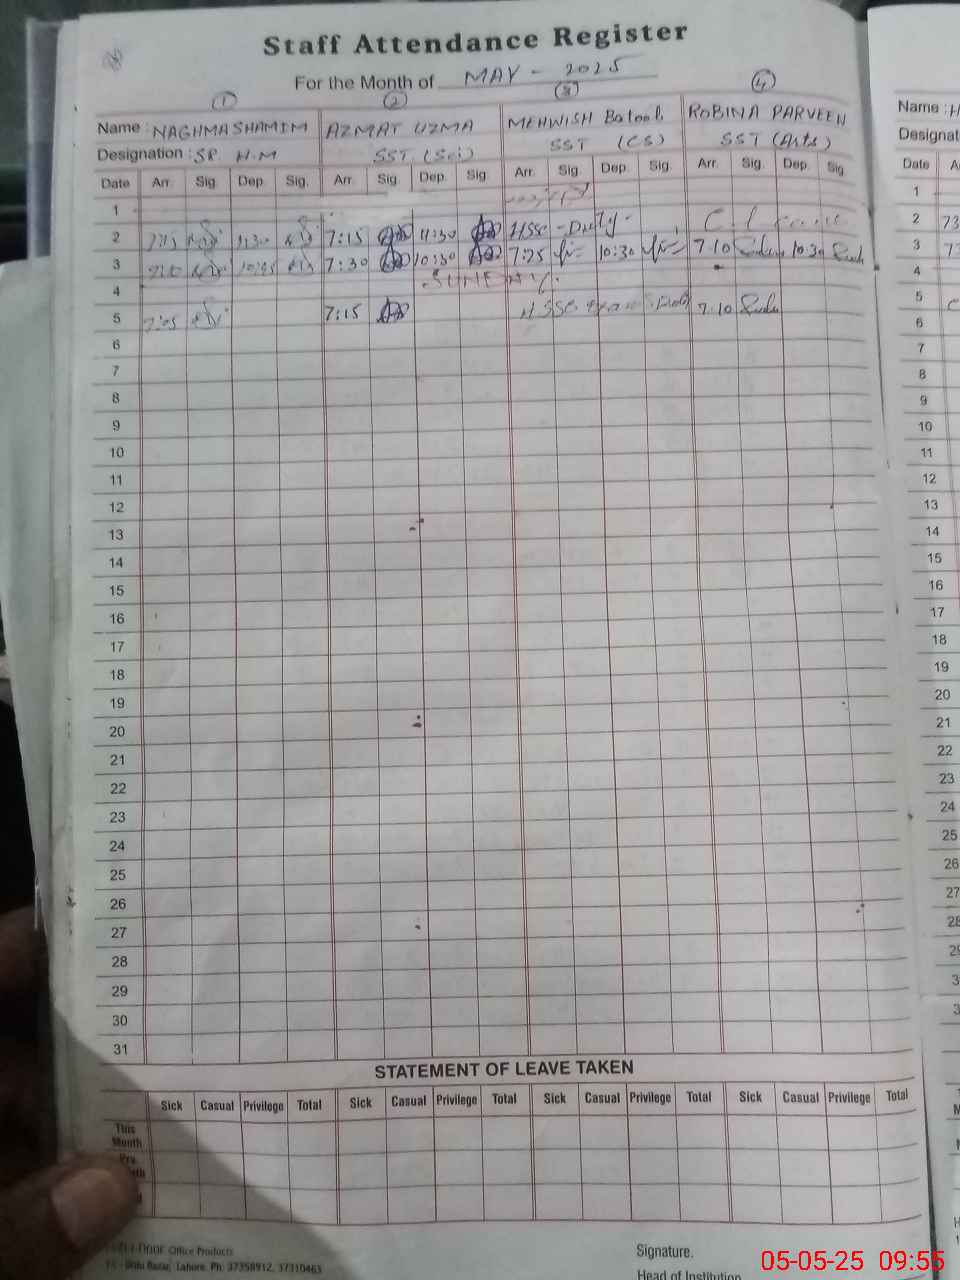 Staff Attendance Register
For the Month of MAY - 2025
① ② ③ ④
Name : NAGHMA SHAMIM AZMAT UZMA MEHWISH Batool ROBINA PARVEEN Name :
Designation : SP. H.M SST (Sci) SST (CS) SST (Arts)
Date Arr. Sig. Dep. Sig. Arr. Sig. Dep. Sig. Arr. Sig. Dep. Sig. Arr. Sig. Dep. Sig. Date
1 1
2 7:15 11:30 7:15 11:30 HSSC - Duty - C. L 2 73
3 7:10 10:35 7:30 10:30 7:25 10:30 7:10 10:30 3
4 SUNDAY. 4
5 7:05 7:15 HSSC Exam 7:10 5
6 6
7 7
8 8
9 9
10 10
11 11
12 12
13 13
14 14
15 15
16 16
17 17
18 18
19 19
20 20
21 21
22 22
23 23
24 24
25 25
26 26
27 27
28 28
29
30
31
STATEMENT OF LEAVE TAKEN
Sick Casual Privilege Total Sick Casual Privilege Total Sick Casual Privilege Total Sick Casual Privilege Total
This Month
Pre.
Office Products
Urdu Bazar, Lahore. Ph: 37358912, 37310463
Signature.
Head of Institution
05-05-25 09:55